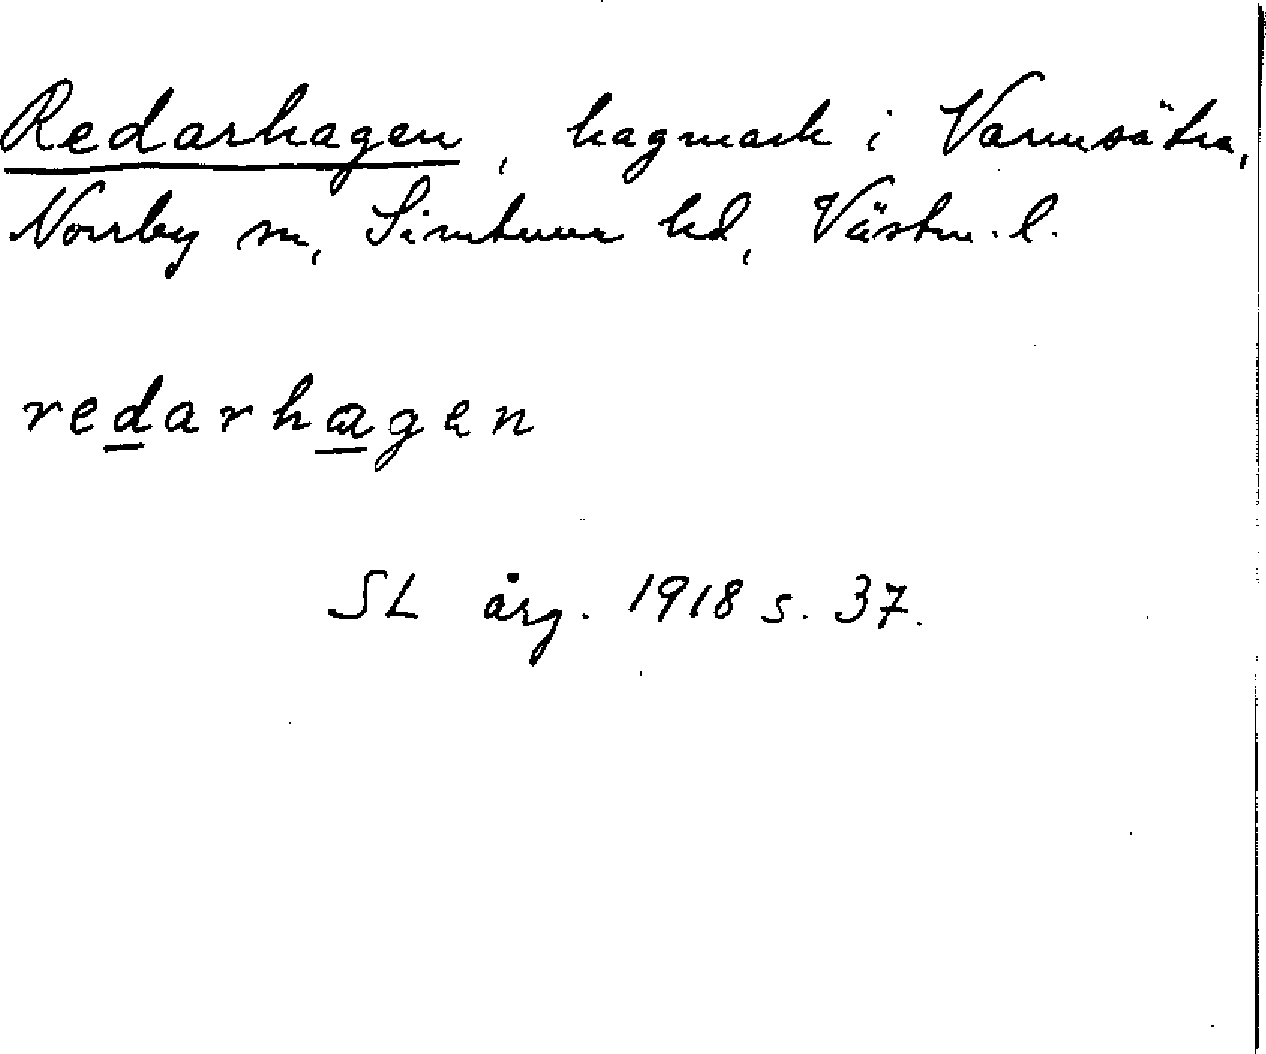 Redarhagen, hagmark i Varmsätra,
Norrby sn, Simtuna hd, Västm. l.
redarhagen
SL årg. 1918 s. 37.